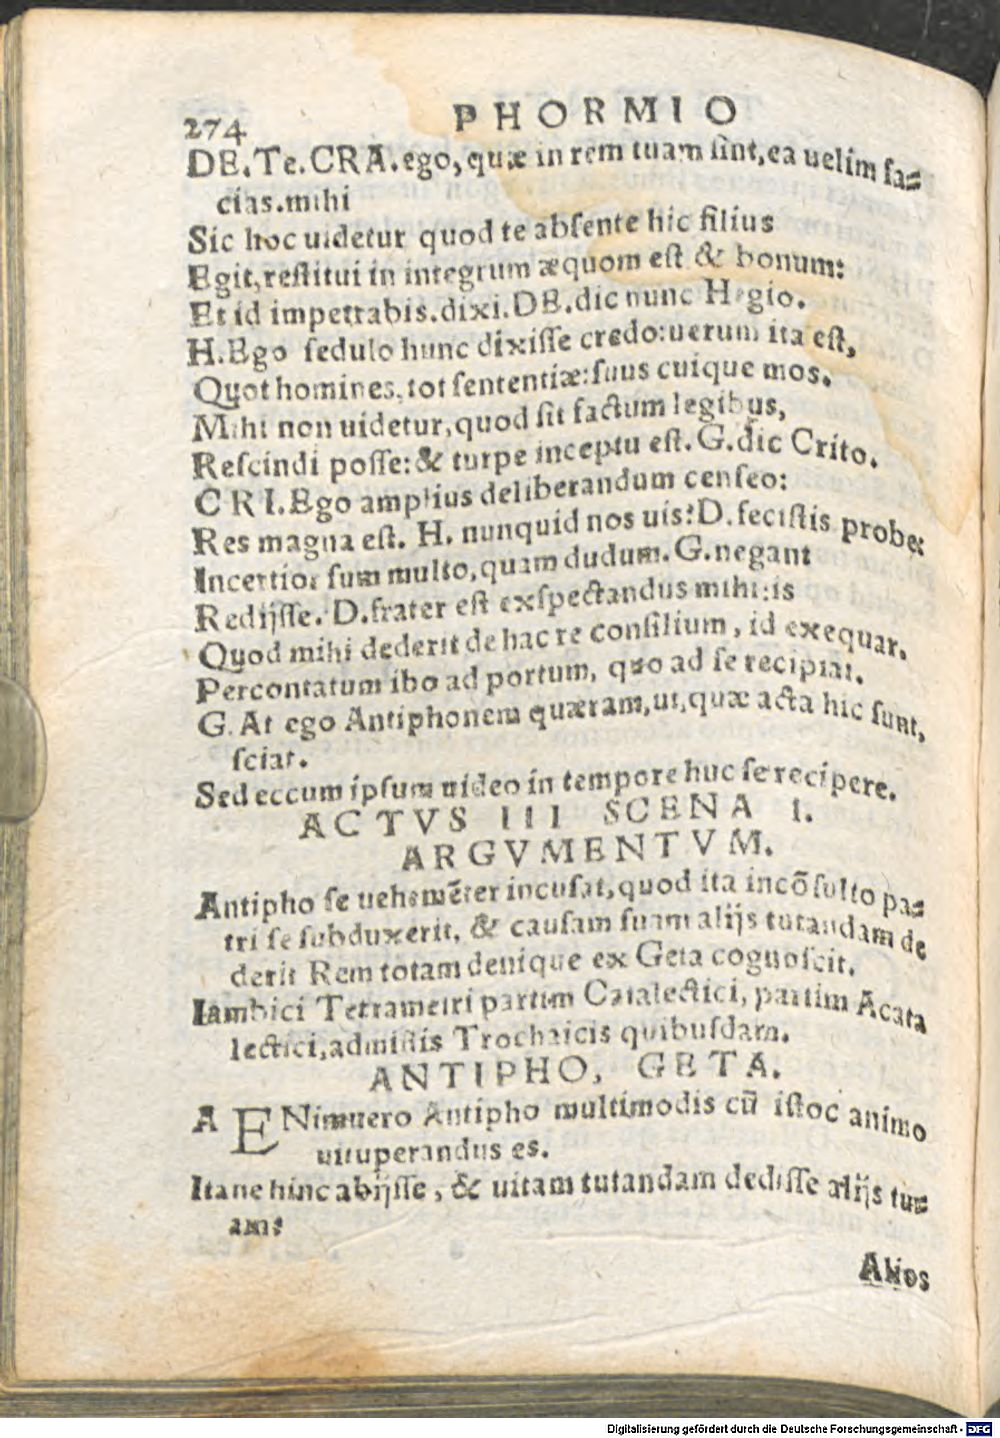 274 PHORMIO
DE.Te.CRA.ego,quæ in rem tuam ſint,ea uelim fa-
cias.mihi
Sic hoc uidetur quod te abſente hic filius
Egit,reſtitui in integrum æquom eſt & bonum:
Et id impetrabis.dixi.DE.dic nunc Hegio.
H.Ego ſedulo hunc dixiſſe credo:uerum ita eſt,
Quot homines,tot ſententiæ:ſuus cuique mos.
Mihi non uidetur,quod ſit factum legibus,
Reſcindi poſſe:& turpe inceptu eſt.G.dic Crito.
CRI.Ego amplius deliberandum cenſeo:
Res magna eſt. H. nunquid nos uis?D.feciſtis probe:
Incertior ſum multo,quam dudum.G.negant
Redijſſe. D.frater eſt exſpectandus mihi:is
Quod mihi dederit de hac re conſilium, id exequar.
Percontatum ibo ad portum, quo ad ſe recipiat.
G.At ego Antiphonem quæram,ut,quæ acta hic ſunt,
ſciat.
Sed eccum ipſum uideo in tempore huc ſe recipere.
ACTVS III SCENA I.
ARGVMENTVM.
Antipho ſe uehemẽter incuſat,quod ita incõſulto pa-
tri ſe ſubduxerit, & cauſam ſuam alijs tutandam de
derit Rem totam denique ex Geta cognoſcit.
Iambici Tetrametri partim Catalectici, partim Acata
lectici,admiſtis Trochaicis quibuſdam.
ANTIPHO, GETA.
A ENimuero Antipho multimodis cũ iſtoc animo
uituperandus es.
Itane hinc abijſſe, & uitam tutandam dediſſe alijs tu-
am?
Alios
Digitalisierung gefördert durch die Deutsche Forschungsgemeinschaft - DFG